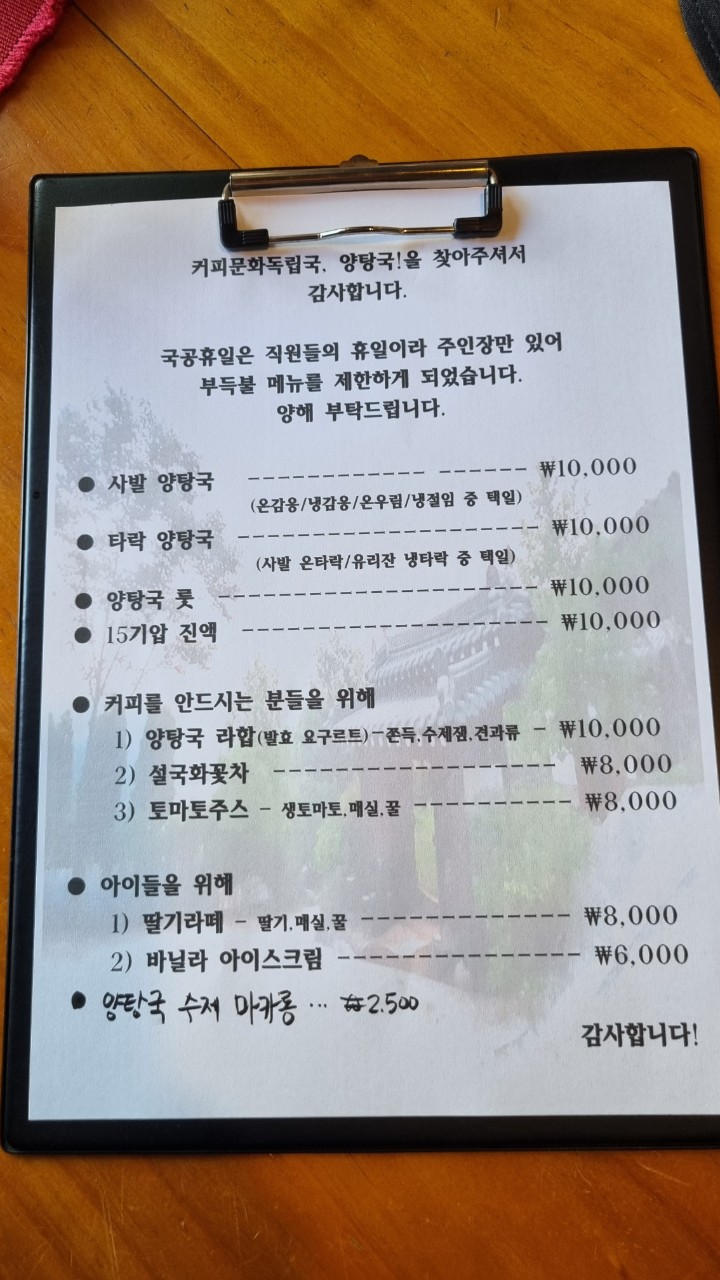 커피문화독립국, 양탕국!을 찾아주셔서
감사합니다.
국공휴일은 직원들의 휴일이라 주인장만 있어
부득불 메뉴를 제한하게 되었습니다.
양해 부탁드립니다.
● 사발 양탕국 ------------ ------ ₩10,000
(온감응/냉감응/온우림/냉절임 중 택일)
● 타락 양탕국 -------------------- ₩10,000
(사발 온타락/유리잔 냉타락 중 택일)
● 양탕국 룻 --------------------- ₩10,000
● 15기압 진액 -------------------- ₩10,000
● 커피를 안드시는 분들을 위해
1) 양탕국 라합(발효 요구르트)-쫀득,수제잼,견과류 - ₩10,000
2) 설국화꽃차 ------------------ ₩8,000
3) 토마토주스 - 생토마토,매실,꿀 ---------- ₩8,000
● 아이들을 위해
1) 딸기라떼 - 딸기,매실,꿀 ------------- ₩8,000
2) 바닐라 아이스크림 --------------- ₩6,000
● 양탕국 수제 마카롱 ... ₩2.500
감사합니다!